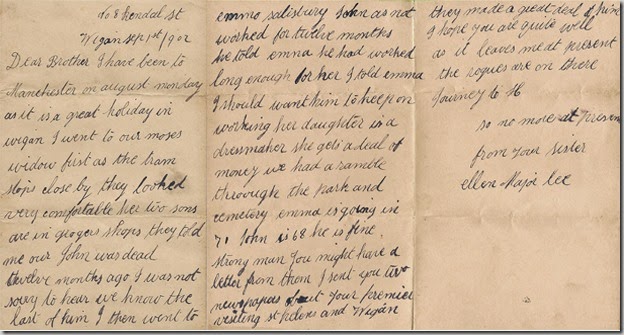 to 8 Kendal st
Wigan Sep 1st / 902
Dear Brother I have been to
Manchester on august monday
as it is a great holiday in
wigan I went to our moses
widow first as the tram
stops close by they looked
very comfortable her two sons
are in grogers shops they told
me our John was dead
twelve months ago I was not
sorry to hear we know the
last of him I then went to
emma salisbury John as not
worked for twelve months
he told emma he had worked
long enough for her I told emma
I should want him to keep on
working her daughter is a
dressmaker she gets a deal of
money we had a ramble
through the Park and
cemetery emma is going in
71 John is 68 he is fine
strong man you might have a
letter from them I sent you two
newspapers about your Premier
visiting st helens and Wigan
they made a great deal of him
I hope you are quite well
as it leaves me at present
the rogues are on there
Journey to H
so no more at Present
from your sister
ellen Major lee